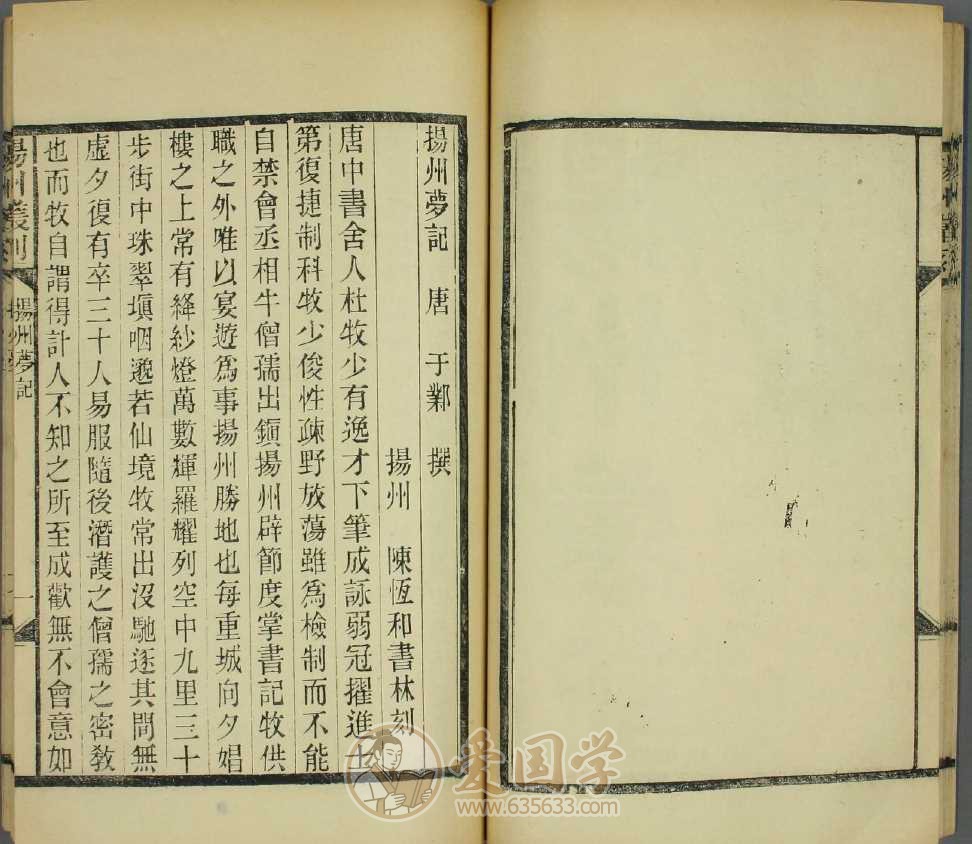 揚州夢記　唐　于鄴　撰
揚州　陳恆和書林刻
唐中書舍人杜牧少有逸才下筆成詠弱冠擢進士
第復捷制科牧少俊性疎野放蕩雖爲檢制而不能
自禁會丞相牛僧孺出鎭揚州辟節度掌書記牧供
職之外唯以宴遊爲事揚州勝地也每重城向夕娼
樓之上常有絳紗燈萬數輝羅耀列空中九里三十
步街中珠翠塡咽邈若仙境牧常出沒馳逐其間無
虛夕復有卒三十人易服隨後潛護之僧孺之密敎
也而牧自謂得計人不知之所至成歡無不會意如
揚州叢刻
揚州夢記
一
爱国学
www.635633.com